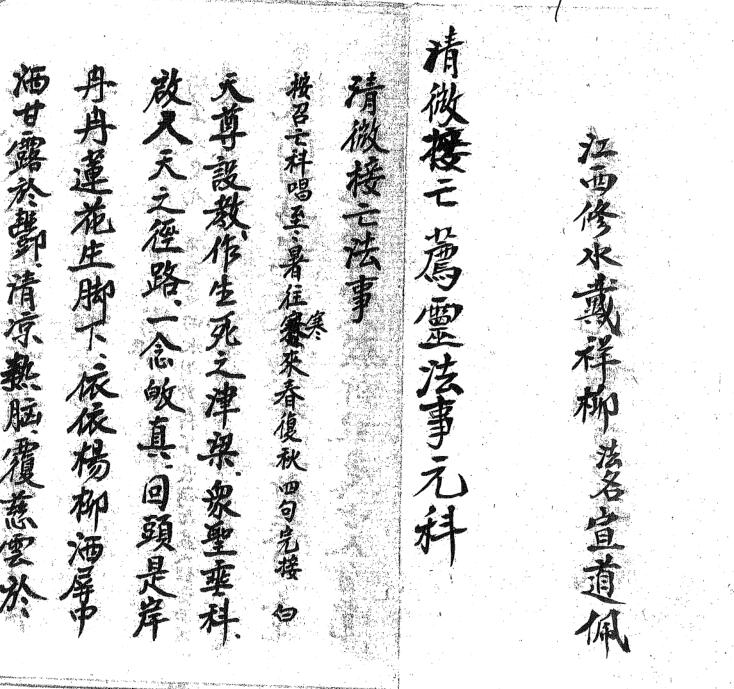 江西修水戴祥柳法名宣道佩
清微接亡薦靈法事元科
清微接亡法事
按召亡科唱至暑往寒來春復秋四句完接 白
天尊設教、作生死之津梁、衆聖垂科、
啟人天之徑路、一念皈真、回頭是岸
冉冉蓮花生脚下、依依楊柳洒屏中
洒甘露於酆、清凉熱脑、覆慈雲於